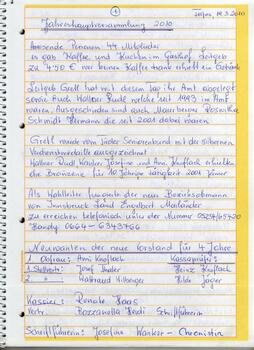 Jahreshauptversammlung 2010
Telfes, 19.3.2010
Anwesende Personen 44 Mitglieder
es gab Kaffee und Kuchen im Gasthof Leitgeb
zu 4.50 € wer keinen Kaffee trank erhielt ein Getränk
Leitgeb Gretl hat mit diesem Tag ihr Amt abgelegt
sowie auch Hallner Rudl welche seit 1993 im Amt
waren. Ausgeschieden sind auch Mairberger Roswitha
Schmidt Hermann die seit 2001 dabei waren.
Gretl wurde vom Tiroler Seniorenbund mit der silbernen
Verdienstmedaille ausgezeichnet
Hallner Rudl, Wanker Josefine und Anni Knoflach erhielten
die Bronzene für 10 Jährige Tätigkeit 2001
Als Wahlleiter fungierte der neue Bezirksobmann
von Innsbruck Land Engelbert Mailänder
zu erreichen telefonisch unter der Nummer
Handy 0664-6343466
Neuwahlen der neue Vorstand für 4 Jahre
1. Obfrau: Anni Knoflach Kassaprüfer:
1. Stellvertr: Josef Thaler Heinz Knoflach
2. " : Waltraud Hilbunger Hilde Jäger
Kassier: Renate Haas
Vertr. Bozzanella Heidi Schriftführerin
Schriftführerin: Josefine Wanker - Chronistin